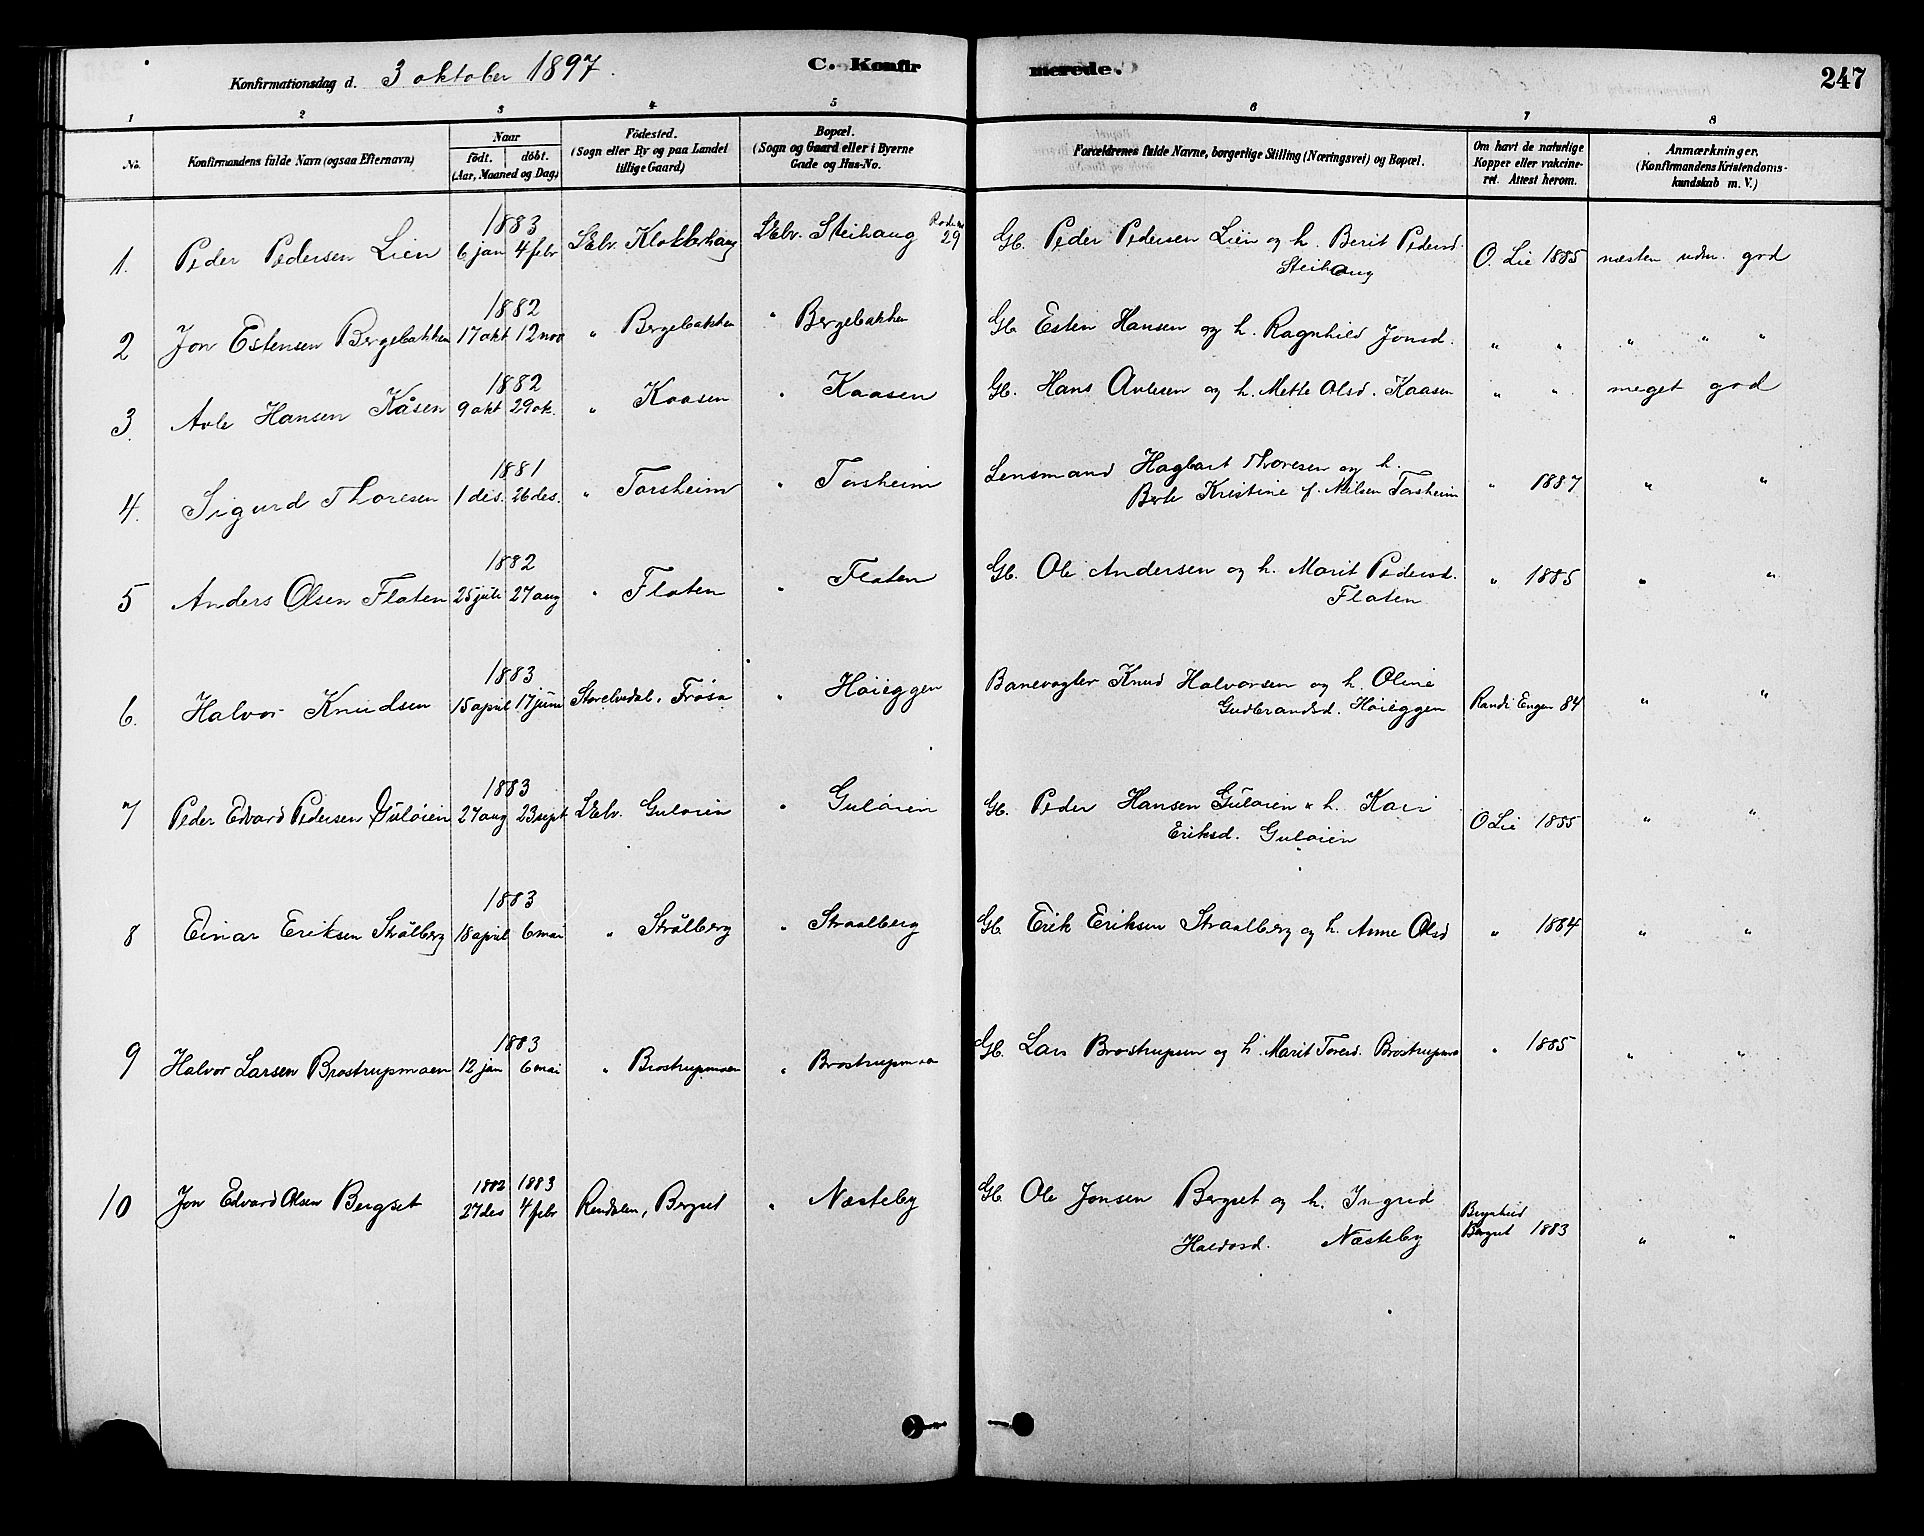 Konfirmationsdag d. 3 oktober 1897.
C. Konfirmerede.
247
1 2 3 4 5 6 7 8
No.
Konfirmandens fulde Navn (ogsaa Efternavn)
Naar
födt. döbt.
(Aar, Maaned og Dag)
Födested.
(Sogn eller By og paa Landet
tillige Gaard)
Bopæl.
(Sogn og Gaard eller i Byerne
Gade og Hus-No.
Forældrenes fulde Navne, borgerlige Stilling (Næringsvei) og Bopæl.
Om havt de naturlige
Kopper eller vakcine-
ret. Attest herom.
Anmærkninger.
(Konfirmandens Kristendoms-
kundskab m. V.)
1883
1. Peder Pedersen Lien 6 jan 4 febr LElv. Klokkerhaug LElv. Steihaug 29 Gb. Peder Pedersen Lien og h. Berit Pedersd. O. Lie 1885 næsten udm. god
Steihaug
1882
2 Jon Estensen Bergebakken 17 okt 12 nov " Bergebakken " Bergebakken Gb. Esten Hansen og h. Ragnhild Jonsd. " " " " "
1882
3. Avle Hansen Kåsen 9 okt 29 ok. " Kaasen " Kaasen Gb. Hans Avlesen og h. Mette Olsd. Kaasen " " meget god
1881
4. Sigurd Thoresen 1 des. 26 des. " Torsheim " Torsheim Lensmand Hagbart Thoresen og h. " 1887 " "
Berte Kristine f. Nilsen Torsheim
1882
5 Anders Olsen Flaten 25 juli 27 aug " Flaten " Flaten Gb. Ole Andersen og h. Marit Pedersd. " 1885 " "
Flaten
1883
6. Halvor Knudsen 15 april 17 juni Storelvedal, Frösa " Höieggen Banevogter Knud Halvorsen og h. Oline Randi Engen 84 " "
Gudbrandsd. Höieggen
1883
7 Peder Edvard Pedersen Gulöien 27 aug 23 sept LElv. Gulöien " Gulöien Gb. Peder Hansen Gulöien & h. Kari O Lie 1885 " "
Eriksd. Gulöien
1883
8 Einar Eriksen Strålberg 18 april 6 mai " Strålberg " Straalberg Gb. Erik Eriksen Straalberg og h. Anne Olsd " 1884 " "
1883
9 Halvor Larsen Brostrupmoen 12 jan 6 mai " Brostrupmoen " Brostrupmoe Gb. Lars Brostrupsen og h. Marit Toresd. Brostrupmo " 1885 " "
1882 1883
10 Jon Edvard Olsen Bergset 27 des 4 febr Rendalen, Bergset " Næsteby Gb. Ole Jonsen Bergset og h. Ingrid
Haldosd. Næsteby Bergset 1883 " "